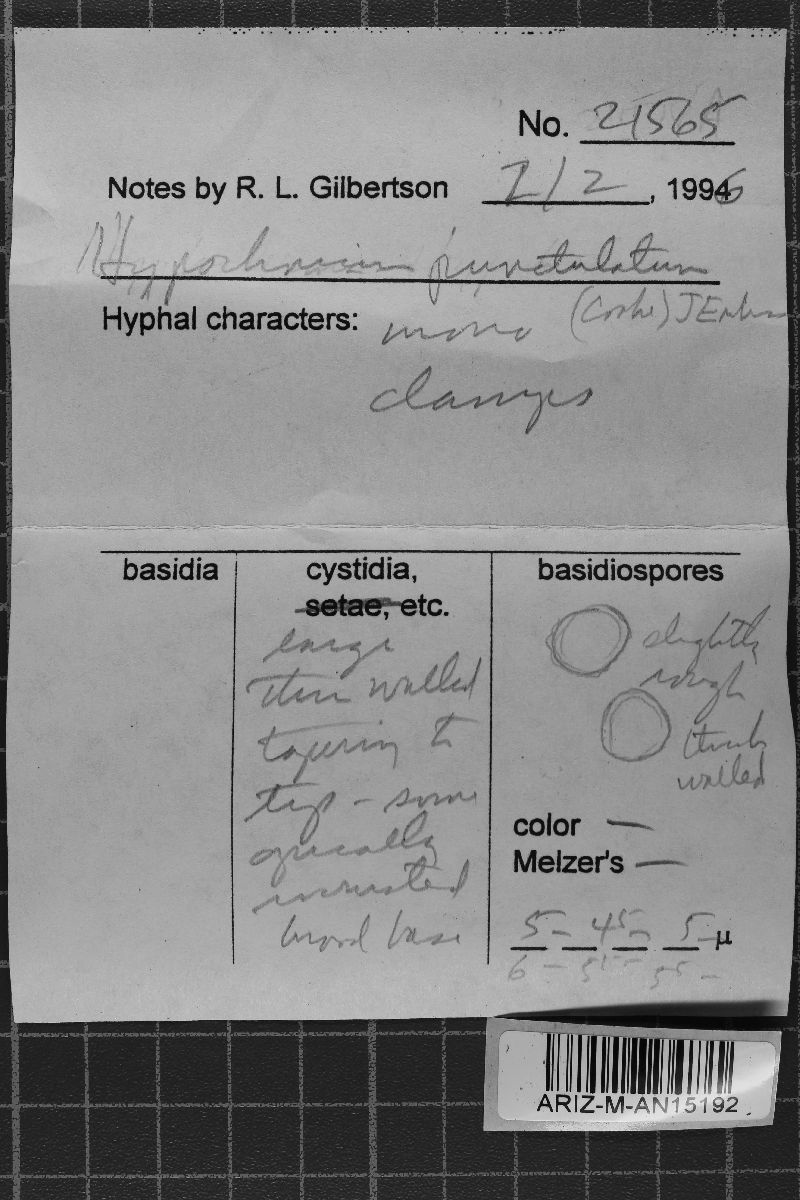 No. 21565
Notes by R. L. Gilbertson 7/2, 1996
Hypochnicium punctulatum
Hyphal characters: mono (Cooke) JErikss
clamps
basidia cystidia, basidiospores
setae, etc.
large slightly
thin walled rough
tapering to thick
tip - some walled
apically
incrusted
broad base
color —
Melzer's —
5 - 4 5 - 5 - µ
6 - 5 5 - 5 5 -
ARIZ-M-AN15192